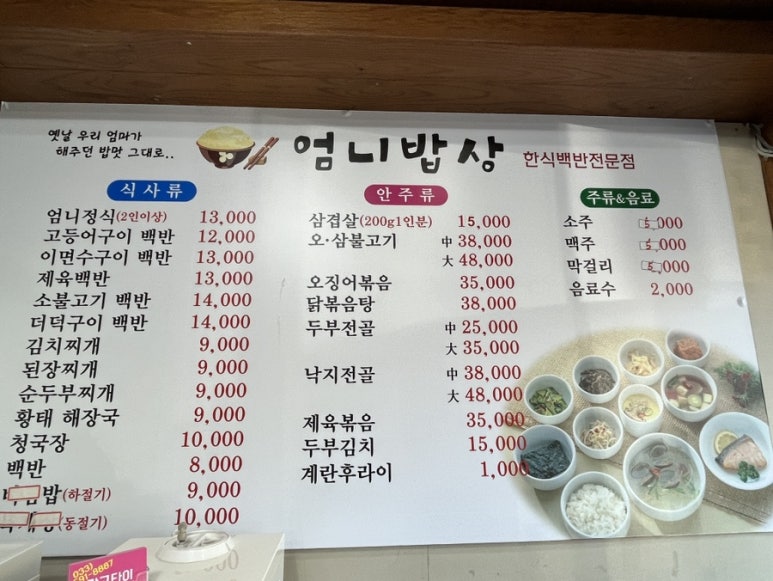 옛날 우리 엄마가
해주던 밥맛 그대로..
엄니밥상 한식백반전문점
식사류
엄니정식(2인이상) 13,000
고등어구이 백반 12,000
이면수구이 백반 13,000
제육백반 13,000
소불고기 백반 14,000
더덕구이 백반 14,000
김치찌개 9,000
된장찌개 9,000
순두부찌개 9,000
황태 해장국 9,000
청국장 10,000
백반 8,000
밥(하절기) 9,000
(동절기) 10,000
안주류
삼겹살(200g1인분) 15,000
오·삼불고기 中 38,000
大 48,000
오징어볶음 35,000
닭볶음탕 38,000
두부전골 中 25,000
大 35,000
낙지전골 中 38,000
大 48,000
제육볶음 35,000
두부김치 15,000
계란후라이 1,000
주류&음료
소주 5,000
맥주 5,000
막걸리 5,000
음료수 2,000
033)